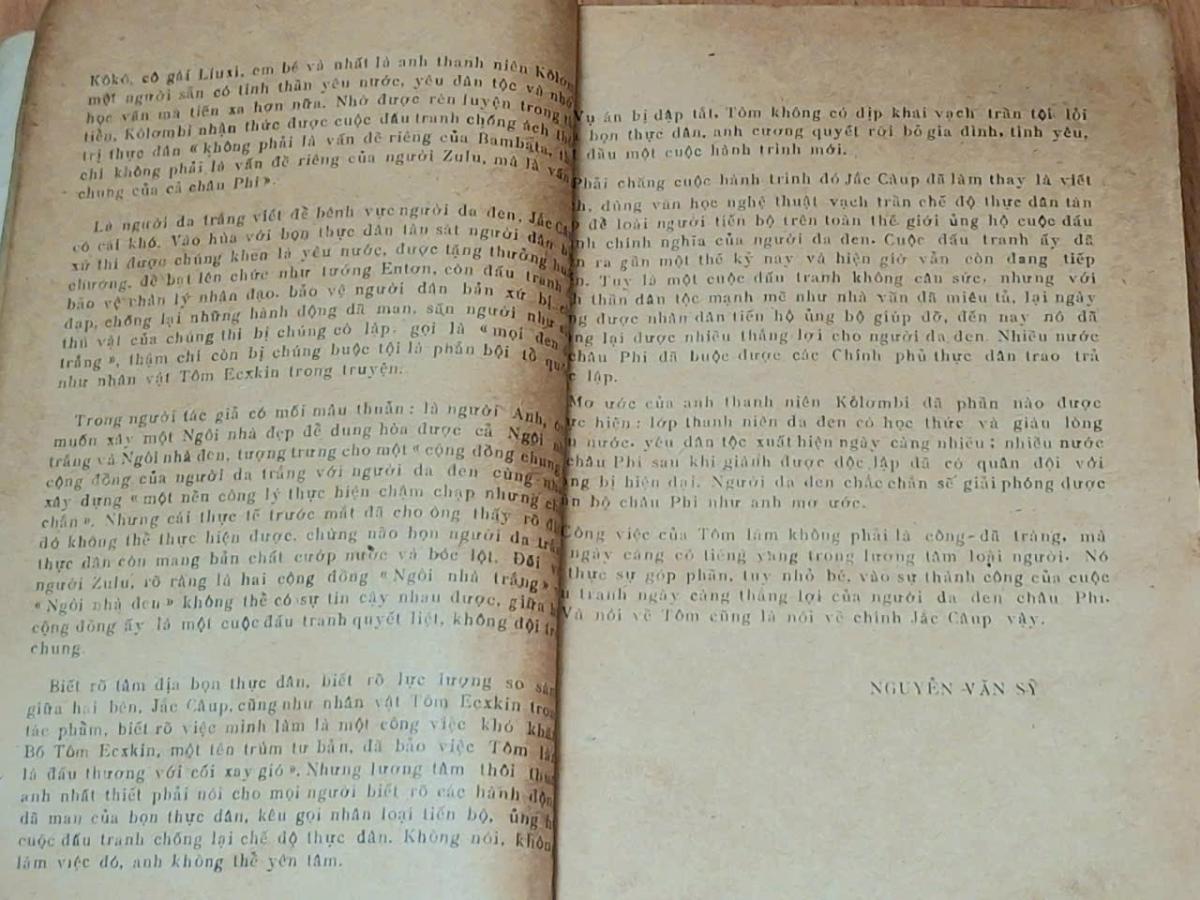 Kôkô, cô gái Liuxi, em bé và nhất là anh thanh niên
một người sẵn có tinh thần yêu nước, yêu dân tộc và
học vấn mà tiến xa hơn nữa. Nhờ được rèn luyện trong
tiễn, Kôlơmbi nhận thức được cuộc đấu tranh chống ách
trị thực dân « không phải là vấn đề riêng của Bambata,
chỉ không phải là vấn đề riêng của người Zulu, mà là vấn
chung của cả châu Phi ».
Là người da trắng viết để bênh vực người da đen, Jắc
có cái khó. Vào hùa với bọn thực dân tàn sát người dân
xứ thì được chúng khen là yêu nước, được tặng thưởng
chương, đề bạt lên chức như tướng Entơn, còn đấu tranh
bảo vệ chân lý nhân đạo, bảo vệ người dân bản xứ bị
đạp, chống lại những hành động dã man, săn người như
thú vật của chúng thì bị chúng cô lập, gọi là « mọi đen
trắng », thậm chí còn bị chúng buộc tội là phản bội tổ
như nhân vật Tôm Ecxkin trong truyện.
Trong người tác giả có mối mâu thuẫn : là người Anh,
muốn xây một Ngôi nhà đẹp để dung hòa được cả Ngôi
trắng và Ngôi nhà đen, tượng trưng cho một « cộng đồng chung
cộng đồng của người da trắng với người da đen cùng
xây dựng « một nền công lý thực hiện chậm chạp nhưng
chắn ». Nhưng cái thực tế trước mắt đã cho ông thấy rõ
đó không thể thực hiện được, chừng nào bọn người da
thực dân còn mang bản chất cướp nước và bóc lột. Đối
người Zulu, rõ ràng là hai cộng đồng « Ngôi nhà trắng »
« Ngôi nhà đen » không thể có sự tin cậy nhau được, giữa
cộng đồng ấy là một cuộc đấu tranh quyết liệt, không đội
chung.
Biết rõ tâm địa bọn thực dân, biết rõ lực lượng so
giữa hai bên, Jắc Câup, cũng như nhân vật Tôm Ecxkin
tác phẩm, biết rõ việc mình làm là một công việc khó
Bố Tôm Ecxkin, một tên trùm tư bản, đã bảo việc Tôm
là đấu thương với cối xay gió ». Nhưng lương tâm thôi
anh nhất thiết phải nói cho mọi người biết rõ các hành
dã man của bọn thực dân, kêu gọi nhân loại tiến bộ, ủng
cuộc đấu tranh chống lại chế độ thực dân. Không nói,
làm việc đó, anh không thể yên tâm.
Vụ án bị dập tắt, Tôm không có dịp khai vạch trần tội lỗi
bọn thực dân, anh cương quyết rời bỏ gia đình, tình yêu,
đầu một cuộc hành trình mới.
Phải chăng cuộc hành trình đó Jắc Câup đã làm thay là viết
dùng văn học nghệ thuật vạch trần chế độ thực dân tàn
để loài người tiến bộ trên toàn thế giới ủng hộ cuộc đấu
chính nghĩa của người da đen. Cuộc đấu tranh ấy đã
ra gần một thế kỷ nay và hiện giờ vẫn còn đang tiếp
Tuy là một cuộc đấu tranh không cân sức, nhưng với
thần dân tộc mạnh mẽ như nhà văn đã miêu tả, lại ngày
được nhân dân tiến bộ ủng hộ giúp đỡ, đến nay nó đã
lại được nhiều thắng lợi cho người da đen. Nhiều nước
châu Phi đã buộc được các Chính phủ thực dân trao trả
lập.
Mơ ước của anh thanh niên Kôlơmbi đã phần nào được
hiện : lớp thanh niên da đen có học thức và giàu lòng
nước, yêu dân tộc xuất hiện ngày càng nhiều ; nhiều nước
châu Phi sau khi giành được độc lập đã có quân đội với
bị hiện đại. Người da đen chắc chắn sẽ giải phóng được
bộ châu Phi như anh mơ ước.
Công việc của Tôm làm không phải là công dã tràng, mà
ngày càng có tiếng vang trong lương tâm loài người. Nó
thực sự góp phần, tuy nhỏ bé, vào sự thành công của cuộc
tranh ngày càng thắng lợi của người da đen châu Phi.
Và nói về Tôm cũng là nói về chính Jắc Câup vậy.
NGUYỄN-VĂN SỸ